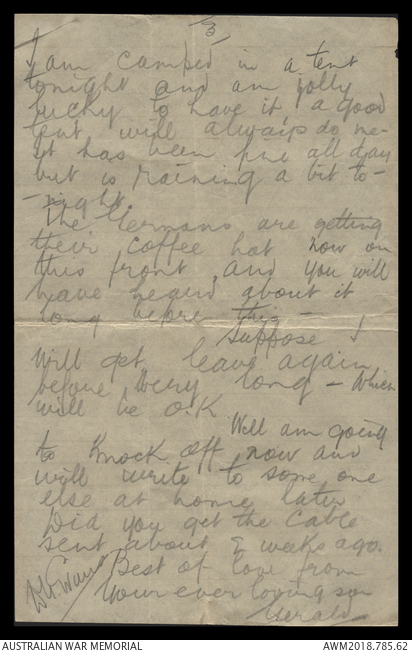 3
I am camped in a tent
tonight and am jolly
lucky to have it, a good
tent will always do me.
It has been fine all day
but is raining a bit to-
-night.
The Germans are getting
their coffee hot now on
this front and you will
have heard about it
long before this –
Suppose I
will get leave again
before very long – which
will be O.K.
Well am going
to knock off now and
will write to some one
else at home later
Did you get the cable
sent about 2 weeks ago.
Best of love from
Your ever loving son
Gerald
AUSTRALIAN WAR MEMORIAL
AWM2018.785.62